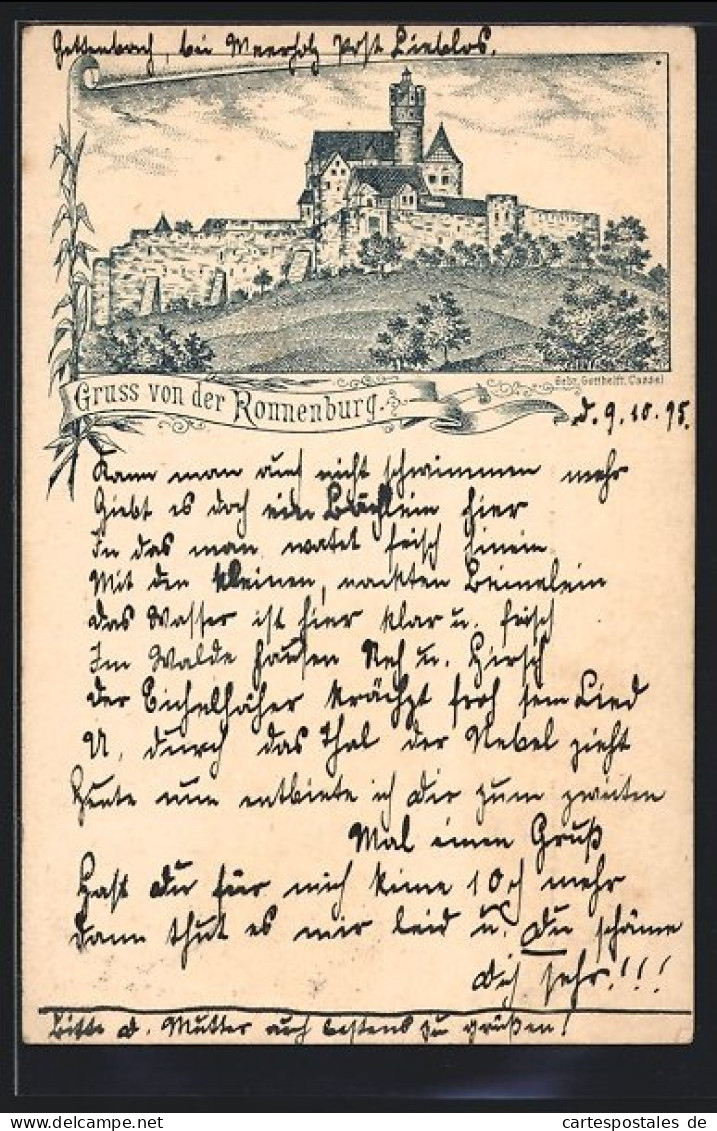 Gettenbach, bei Meerholz Post Lieblos.
Gebr. Gotthelft, Cassel
Gruss von der Ronnenburg.
d. 9. 10. 95.
Kann man auch nicht schwimmen mehr
Giebt es doch ein Bächlein hier
In das man watet frisch hinein
Mit den kleinen, nackten Beinelein
Das Wasser ist hier klar u. frisch
Im Walde hausen Reh u. Hirsch
Der Eichelhäher krächzt froh sein Lied
U. durch das Thal der Nebel zieht
Heute nun entbiete ich Dir zum zweiten
Mal einen Gruß
Hast Du für mich keine 10 ₰ mehr
Dann thut es mir leid u. Du schäme
Dich sehr!!!
Bitte d. Mutter auch bestens zu grüßen!
cartespostales de